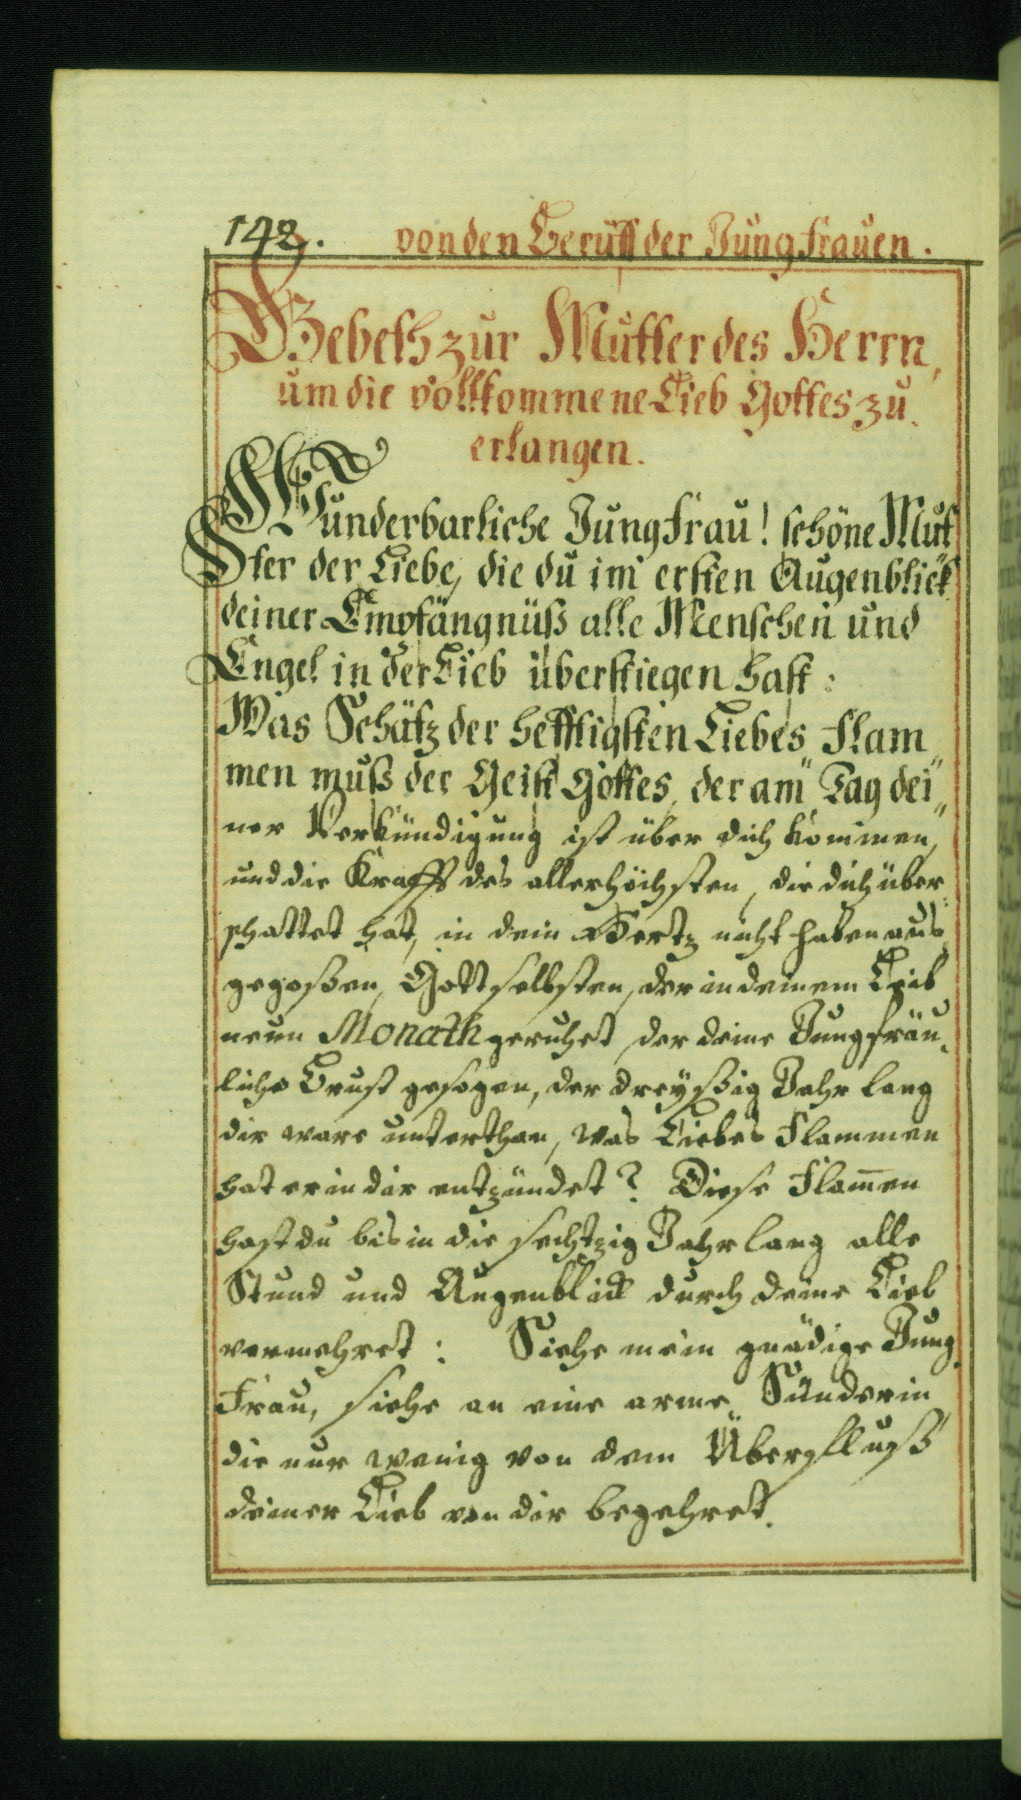 142. von den Beruff der Jungfrauen.
Gebeth zur Mutter des Herrn,
um die vollkommene Lieb Gottes zu
erlangen.
Wunderbarliche Jungfrau! schöne Mut
ter der Liebe, die du im ersten Augenblick
deiner Empfängnüß alle Menschen und
Engel in der Lieb überstiegen hast:
Was Schätz der hefftigsten Liebes Flam
men muß der Geist Gottes, der am Tag dei„
ner Verkündigung ist über dich kommen,
und die Krafft des allerhöchsten, die dich über„
schattet hat, in dein Hertz nicht haben aus
gegoßen, Gott selbsten, der in deinem Leib
neun Monath geruhet, der deine Jungfräu„
liche Brust gesogen, der dreyßig Jahr lang
dir ware unterthan, was Liebes Flammen
hat er in dir entzündet? Diese Flam̅en
hast du bis in die sechtzig Jahr lang alle
Stund und Augenblick durch deine Lieb
vermehret: Siehe mein gnädige Jung
Frau, siehe an eine arme Sünderin
die nur wenig von dem Überfluß
deiner Lieb von dir begehret.